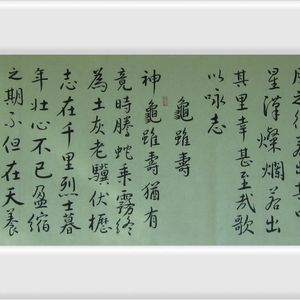 之行若出其中
星漢燦爛若出
其里幸甚至哉歌
以咏志
龜雖壽
神龜雖壽猶有
竟時騰蛇乘霧終
為土灰老驥伏櫪
志在千里烈士暮
年壯心不已盈縮
之期不但在天養